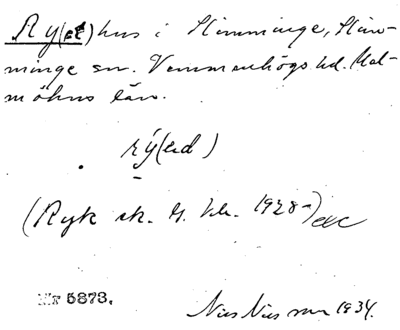 Ry(et)hus i Skimminge, Stäv-
minge sn. Vemmenhögs hd. Mal-
möhus län.
rý(ed)
(Ryk sk. G. kb. 1928-) etc
Nr 5873.
Nils Nilsson 1934.